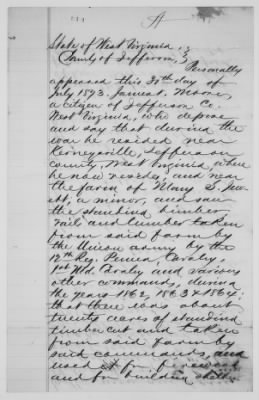 A
State of West Virginia,
County of Jefferson,
Personally
appeared this 30th day of
July 1893. James Moore,
a Citizen of Jefferson Co.
West Virginia, who depose
and say that during the
war he resided near
Kerneysville, Jefferson
County, West Virginia, where
he now resides, and near
the farm of Mary S.
a minor, and saw
the standing timber,
rail and lumber taken
from said farm by
the Union army by the
12th Reg. Penna. Cavalry,
1st Md. Cavalry and various
other commands, during
the years 1862, 1863 & 1864;
that there was about
twenty acres of standing
timber cut and taken
from said farm by
such commands, and
used it for firewood
and for building